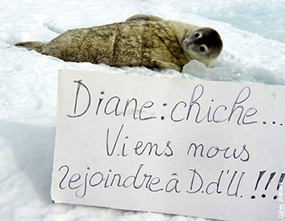 Diane : chiche...
Viens nous
rejoindre à D.d'U. !!!